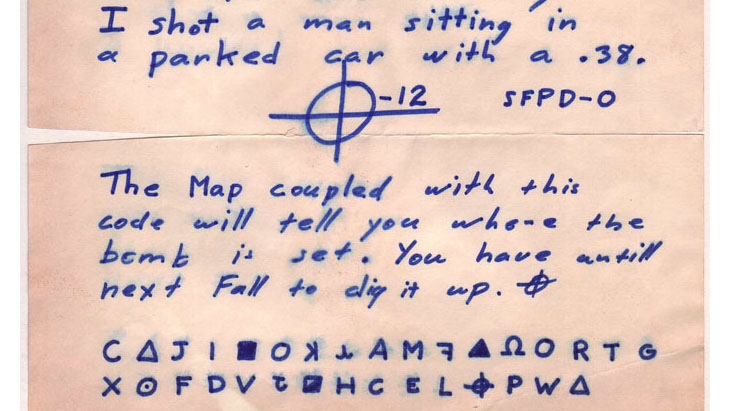 I shot a man sitting in
a parked car with a .38.
-12 SFPD-0
The Map coupled with this
code will tell you whe-e the
bomb is set. You have untill
next Fall to dig it up. ⌖
C Δ J I ■ O ꓘ ⅄ A M ꟻ ▲ Ω O R T G
X ⊙ F D V Ɩ ◪ H C E L ⌖ P W Δ